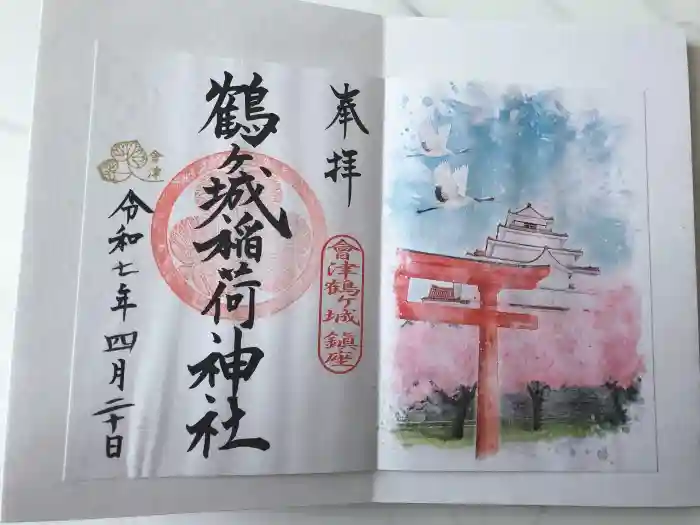 奉拝
會津鶴ヶ城鎮座
鶴ヶ城稲荷神社
令和七年四月二十日
會津